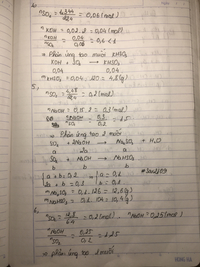 4.,
nSO2 = 1,344/22,4 = 0,06 (mol)
nKOH = 0,02.2 = 0,04 (mol)
nKOH/nSO2 = 0,04/0,06 = 0,6 < 1
→ Phản ứng tạo muối KHSO3
KOH + SO2 → KHSO3
0,04 0,04
mKHSO3 = 0,04.120 = 4,8 (g)
5.,
nSO2 = 4,48/22,4 = 0,2 (mol)
nNaOH = 0,15.2 = 0,3 (mol)
nNaOH/nSO2 = 0,3/0,2 = 1,5
→ Phản ứng tạo 2 muối
SO2 + 2NaOH → Na2SO3 + H2O
a 2a a
SO2 + NaOH → NaHSO3
b b b
a + b = 0,2 a = 0,1
2a + b = 0,3 b = 0,1
mNa2SO3 = 0,1.126 = 12,6 (g)
mNaHSO3 = 0,1.104 = 10,4 (g)
6.,
nSO2 = 0,2 (mol) nNaOH = 0,25 (mol)
nNaOH/nSO2 = 0,25/0,2 = 1,25
→ phản ứng tạo 2 muối